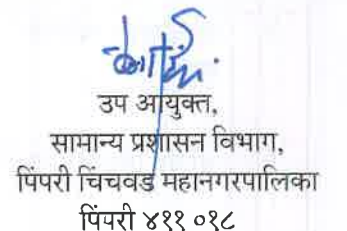 उप आयुक्त,
सामान्य प्रशासन विभाग,
पिंपरी चिंचवड महानगरपालिका
पिंपरी ४११ ०१८